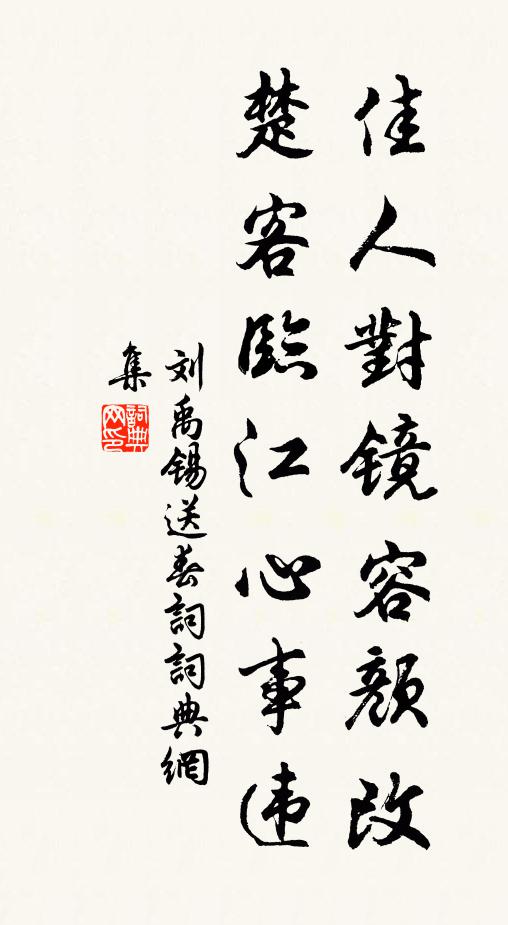 佳人對鏡容顏改
楚客臨江心事違
刘禹锡送春詞詞典網
集
詞典网印